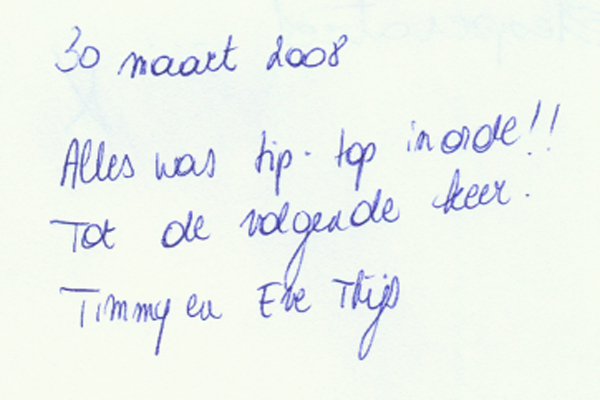 30 maart 2008
Alles was tip-top in orde!!
Tot de volgende keer.
Timmy en Eve Thijs